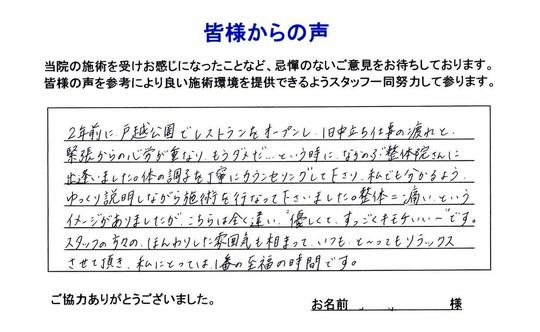 皆様からの声
当院の施術を受けお感じになったことなど、忌憚のないご意見をお待ちしております。
皆様の声を参考により良い施術環境を提供できるようスタッフ一同努力して参ります。
2年前に、戸越公園でレストランをオープンし、1日中立ち仕事の疲れと、
緊張からの心労が重なり、もうダメだ…という時に、ながめぶ整体院さんに
出逢いました。体の調子を丁寧にカウンセリングして下さり、私でも分かるよう、
ゆっくり説明しながら施術を行なって下さいました。整体=痛い、という
イメージがありましたが、こちらは全く違い、"優しくて、すっごくキモチいい〜"です。
スタッフの方々の、ほんわりした雰囲気も相まって、いつも、と〜ってもリラックス
させて頂き、私にとっては、1番の至福の時間です。
ご協力ありがとうございました。
お名前 様